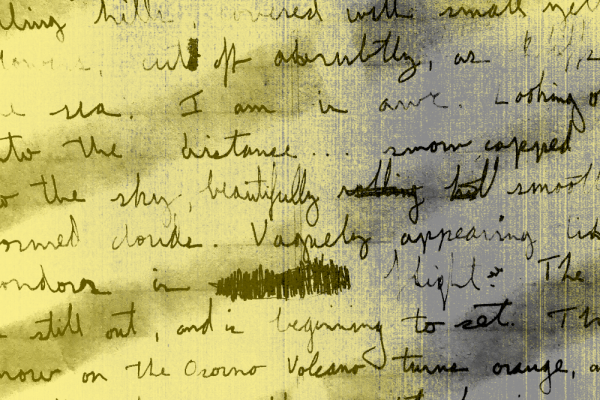 hills, covered with small yell
cut off abruptly, as
sea. I am in awe. Looking o
to the distance... snow capped
o the sky, beautifully smooth
ormed clouds. Vaguely appearing lik
ondors in flight. The
still out, and is beginning to set. Th
now on the Osorno Volcano turns orange, a